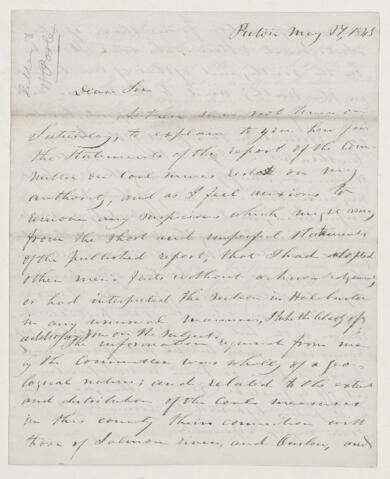 Pictou May 27, 1843
Dear Sir
As there was not time on
Saturday, to explain to you how far
the statements of the report of the Com-
mittee on Coal mines rest on my
authority, and as I feel anxious to
remove any suspicions which might arise
from the short and imperfect statements
of the published report, that I had adopted
other men's facts without acknowledgment,
or had interpreted the section in
in any unusual manner, I take the liberty of
addressing you on the subject.
The information required from me
by the Committee was wholly of a geo-
logical nature; and related to the extent
and distribution of the Coal measures
in this county their connection with
those of Salmon river, and Onslow, and